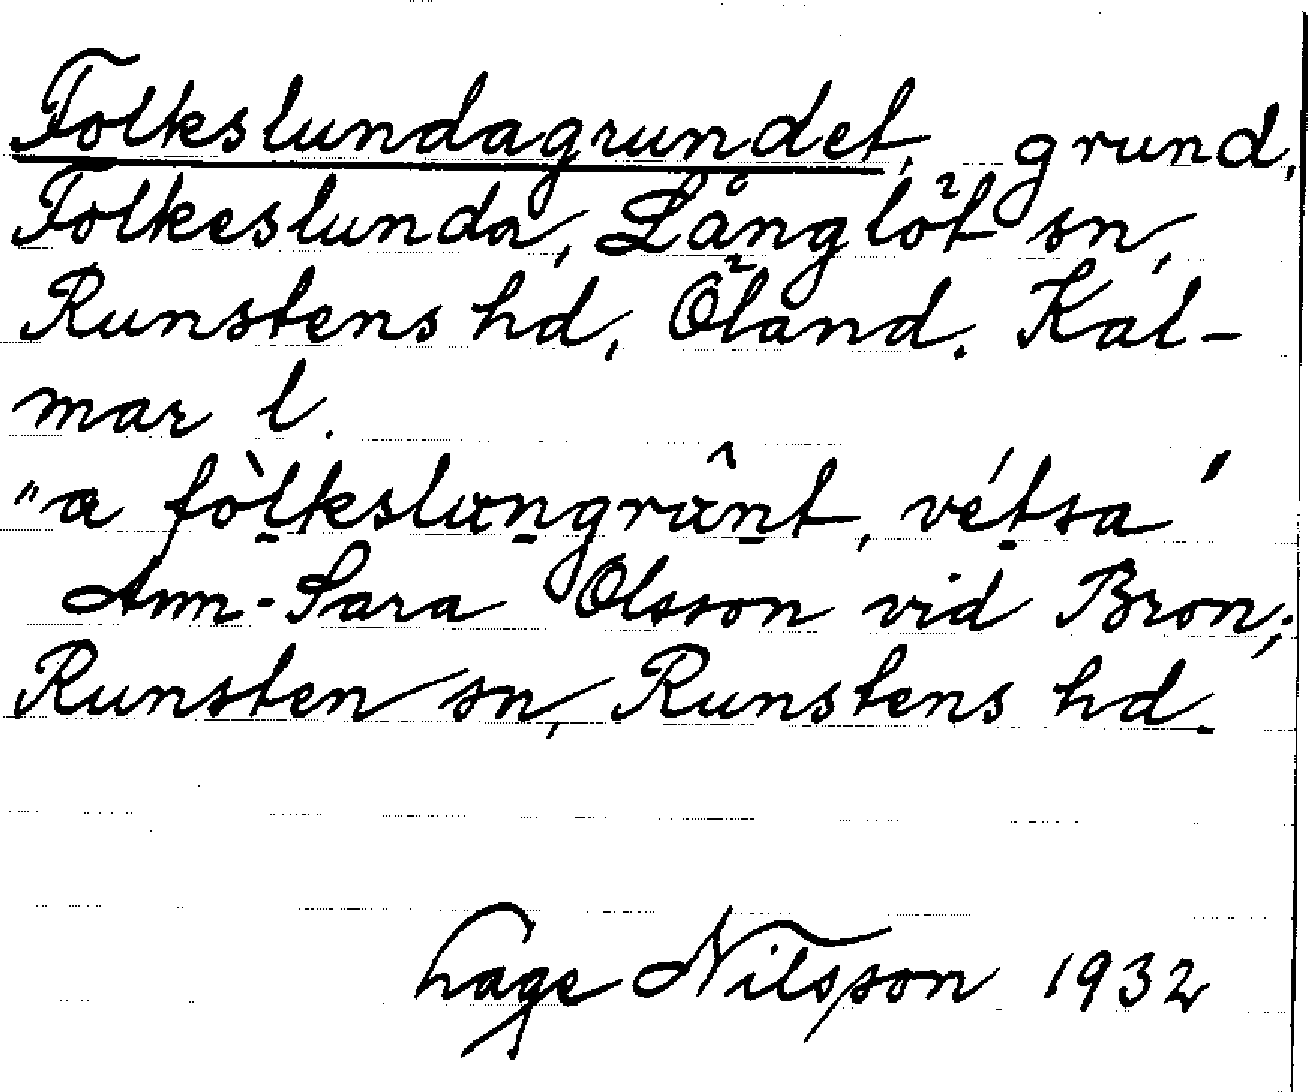 Folkslundagrundet, grund,
Folkeslunda, Långlöt sn,
Runstens hd, Öland. Kal-
mar l.
"a fòl̠kslan̠grân̠t, vét̠sa"
Ann-Sara Olsson vid Bron;
Runsten sn, Runstens hd.
Lage Nilsson 1932